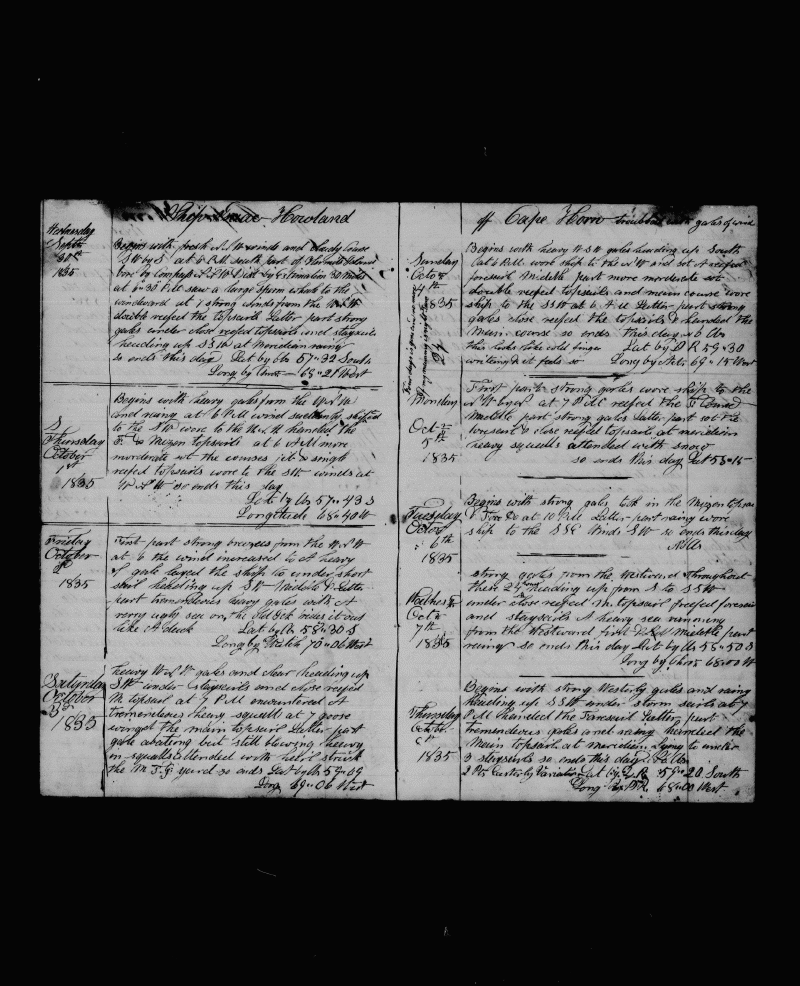 Ship Isaac Howland
Wednesday
Sept
30th
1835
Begins with fresh N.W winds and cloudy Course
SW by S at 6 P.M. South part of Falkland Island
bore by Compass
at 6.30 P.M saw a large Sperm whale to the
windward at 7 strong winds from the W.N.W
double reefed the topsails Latter part strong
gales under close reefed topsails and staysails
heading up SSW at Meridian raining
so ends this day Lat by Obs 57.32 South
Long by Chro 69.21 West
Thursday
October
1st
1835
Begins with heavy gales from the W.N.W
and rainy at 6 P.M wind
to the SW wore to the W.N.W handed the
F. & Mizen topsails at 6 A.M more
moderate set the courses jib & single
reefed topsails wore to the SW winds at
W.N.W so ends this day
Lat by Obs 57.43 S
Longitude 68.40 W
Friday
October
2d
1835
First part strong breezes from the W.N.W
at 6 the wind increased to A heavy
gale layed the ship to under short
sail heading up SW Middle & Latter
part tremendous heavy gales with A
verry ugly sea on, the Old rides it out
like A duck Lat by Obs 58.30 S
Long by Watch 70.06 West
Saturday
October
3d
1835
heavy W.N.W gales and clear heading up
SW under staysails and close reefed
M topsail at 7 P.M encountered A
tremendous heavy squall at 7 goose
winged the main topsail Latter part
gale abating but still blowing heavy
in squalls attended with hail struck
the M.T.G. yard so ends Lat by Obs 59.09
Long 69.06 West
off Cape Horn troubled with gales of wind
Sunday
Octo
4th
1835
Begins with heavy WSW gales heading up South
at 6 P.M. wore ship to the N.W and set A reefed
foresail Middle part more moderate set
double reefed topsails and main course wore
ship to the SSW at 6 A.M Latter part strong
gales close reefed the topsails & handed the
Main course so ends this day no Obs
this looks like cold fingers Lat by D R 59.30
writing & it feels so Long by 69.15 West
Monday
Oct
5th
1835
First part strong gales wore ship to the
N.W at 7 P.M reefed the
Middle part strong gales Latter part set the
foresail & close reefed topsails at meridian
heavy squalls attended with snow
so ends this day Lat 58.15
Tuesday
Octo
6th
1835
Begins with strong gales took in the Mizen topsail
& Fore Do at 10 P.M Latter part rainy wore
ship to the SSE Winds SW so ends this day
N Obs
Wednes
Oct
7th
1835
strong gales from the Westward throughout
these 24 hours heading up from S to SSW
under close reefed M. topsail reefed foresail
and staysails A heavy sea running
from the Westward first & Middle part
rainy so ends this day Lat by Obs 58.50 S
Long by Chro 68.00 W
Thursday
Octobr
1835
Begins with strong Westerly gales and rainy
heading up SSW under storm sails at 7
P.M handed the Foresail Latter part
tremendous gales and rainy handed the
Main topsail at meridian Lying to under
3 staysails so ends this day
2 Pts Easterly Variation Lat by D.R. 59.20 South
Long by DR. 68.00 West